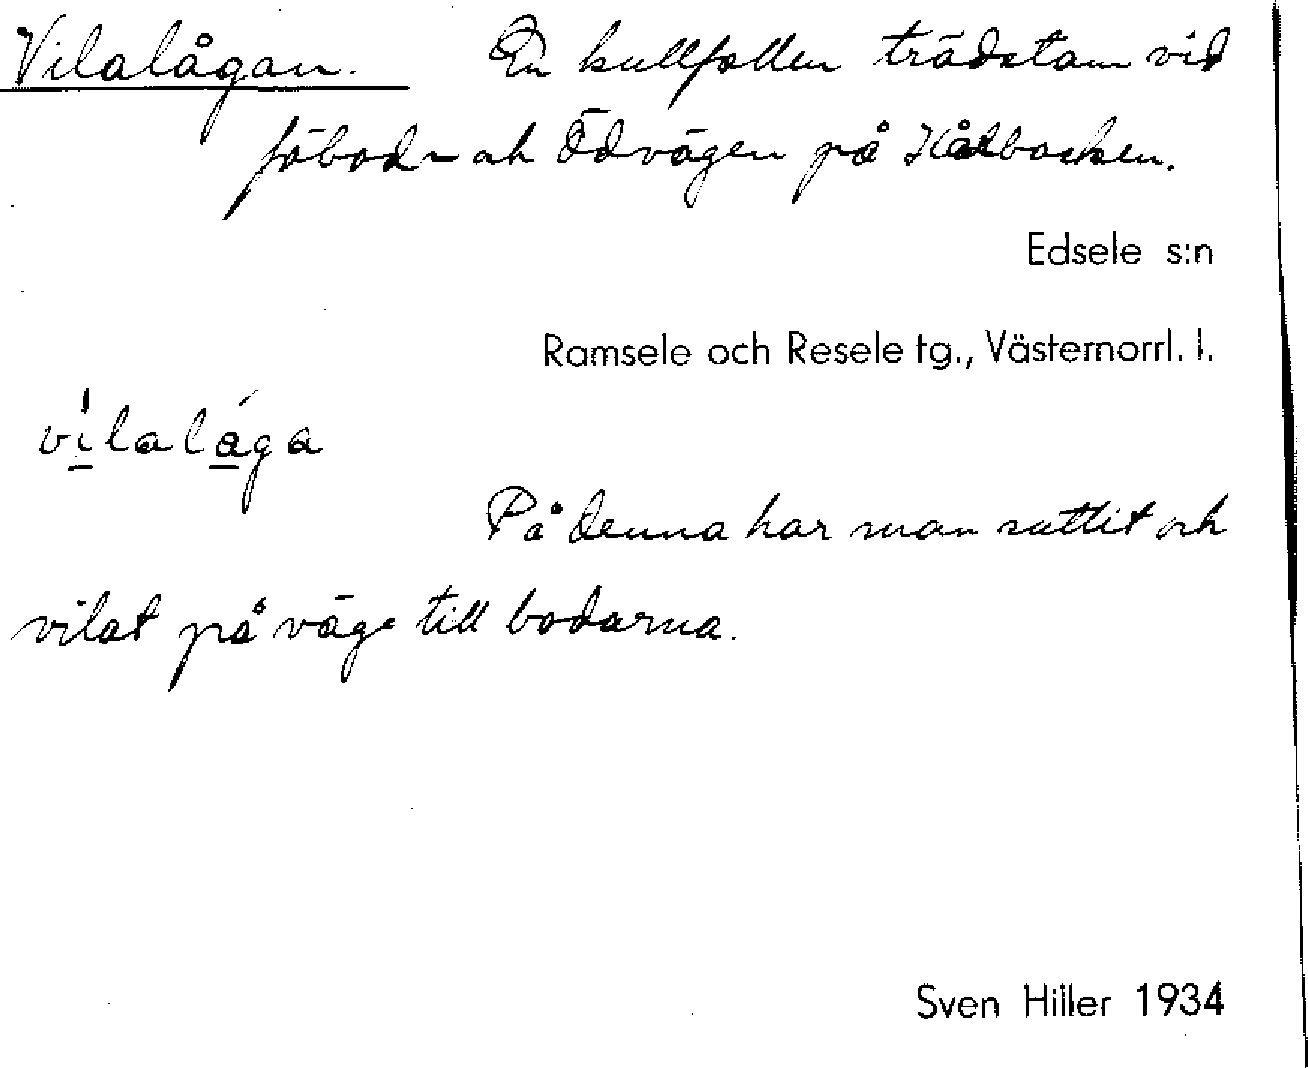 Vilalågan. En kullfallen trädstam vid
fäbod- och Ödvägen på Kålbacken.
Edsele s:n
Ramsele och Resele tg., Västernorrl. l.
vilalåga
På denna har man suttit och
vilat på väge till bodarna.
Sven Hiller 1934